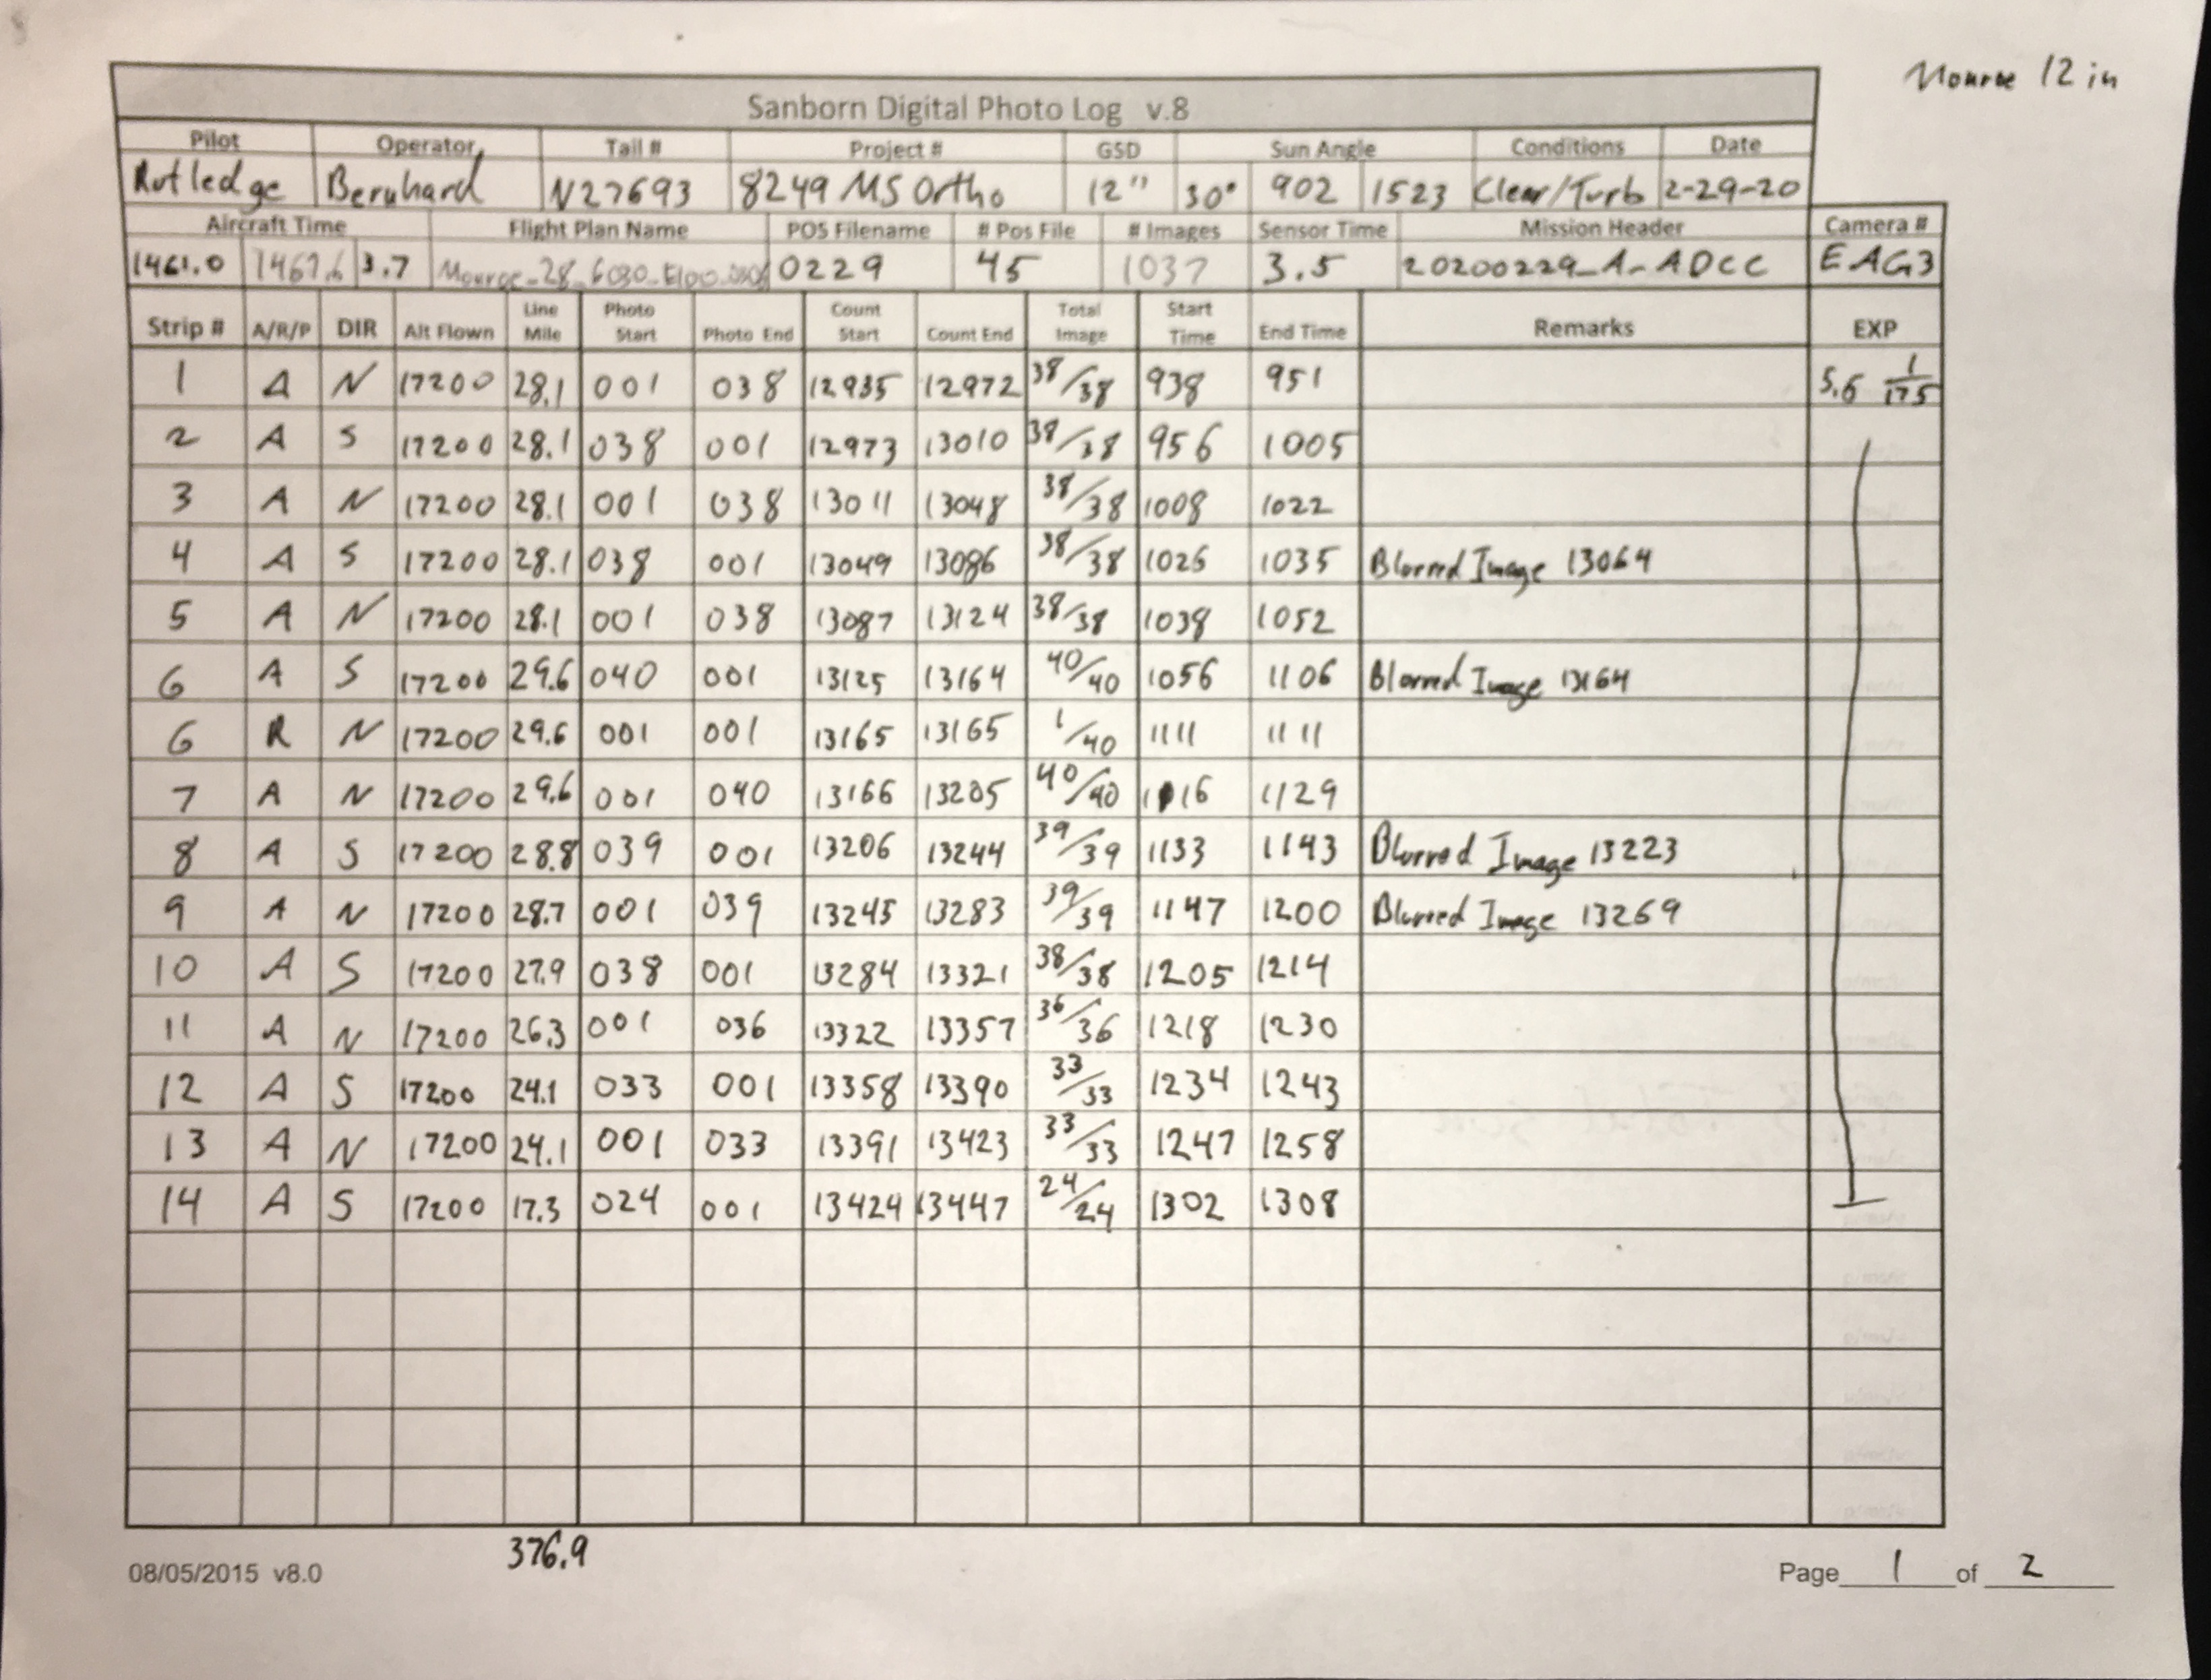 Monroe 12 in
Sanborn Digital Photo Log v.8
Pilot Operator Tail # Project # GSD Sun Angle Conditions Date
Rutledge Bernhard N27693 8249 MS Ortho 12" 30° 902 1523 Clear/Turb 2-29-20
Aircraft Time Flight Plan Name POS Filename # Pos File # Images Sensor Time Mission Header Camera #
1461.0 3.7 0229 45 1037 3.5 20200229_A_ADCC EAG3
Strip # A/R/P DIR Alt Flown Line Mile Photo Start Photo End Count Start Count End Total Image Start Time End Time Remarks EXP
1 A N 17200 28.1 001 038 12935 12972 38/38 938 951 5.6 1/175
2 A S 17200 28.1 038 001 12973 13010 38/38 956 1005
3 A N 17200 28.1 001 038 13011 13048 38/38 1008 1022
4 A S 17200 28.1 038 001 13049 13086 38/38 1026 1035 Blurred Image 13064
5 A N 17200 28.1 001 038 13087 13124 38/38 1038 1052
6 A S 17200 29.6 040 001 13125 13164 40/40 1056 1106 Blurred Image 13164
6 R N 17200 29.6 001 001 13165 13165 1/40 1111 1111
7 A N 17200 29.6 001 040 13166 13205 40/40 1116 1129
8 A S 17200 28.8 039 001 13206 13244 39/39 1133 1143 Blurred Image 13223
9 A N 17200 28.7 001 039 13245 13283 39/39 1147 1200 Blurred Image 13269
10 A S 17200 27.9 038 001 13284 13321 38/38 1205 1214
11 A N 17200 26.3 001 036 13322 13357 36/36 1218 1230
12 A S 17200 24.1 033 001 13358 13390 33/33 1234 1243
13 A N 17200 24.1 001 033 13391 13423 33/33 1247 1258
14 A S 17200 17.3 024 001 13424 13447 24/24 1302 1308
376.9
08/05/2015 v8.0
Page 1 of 2